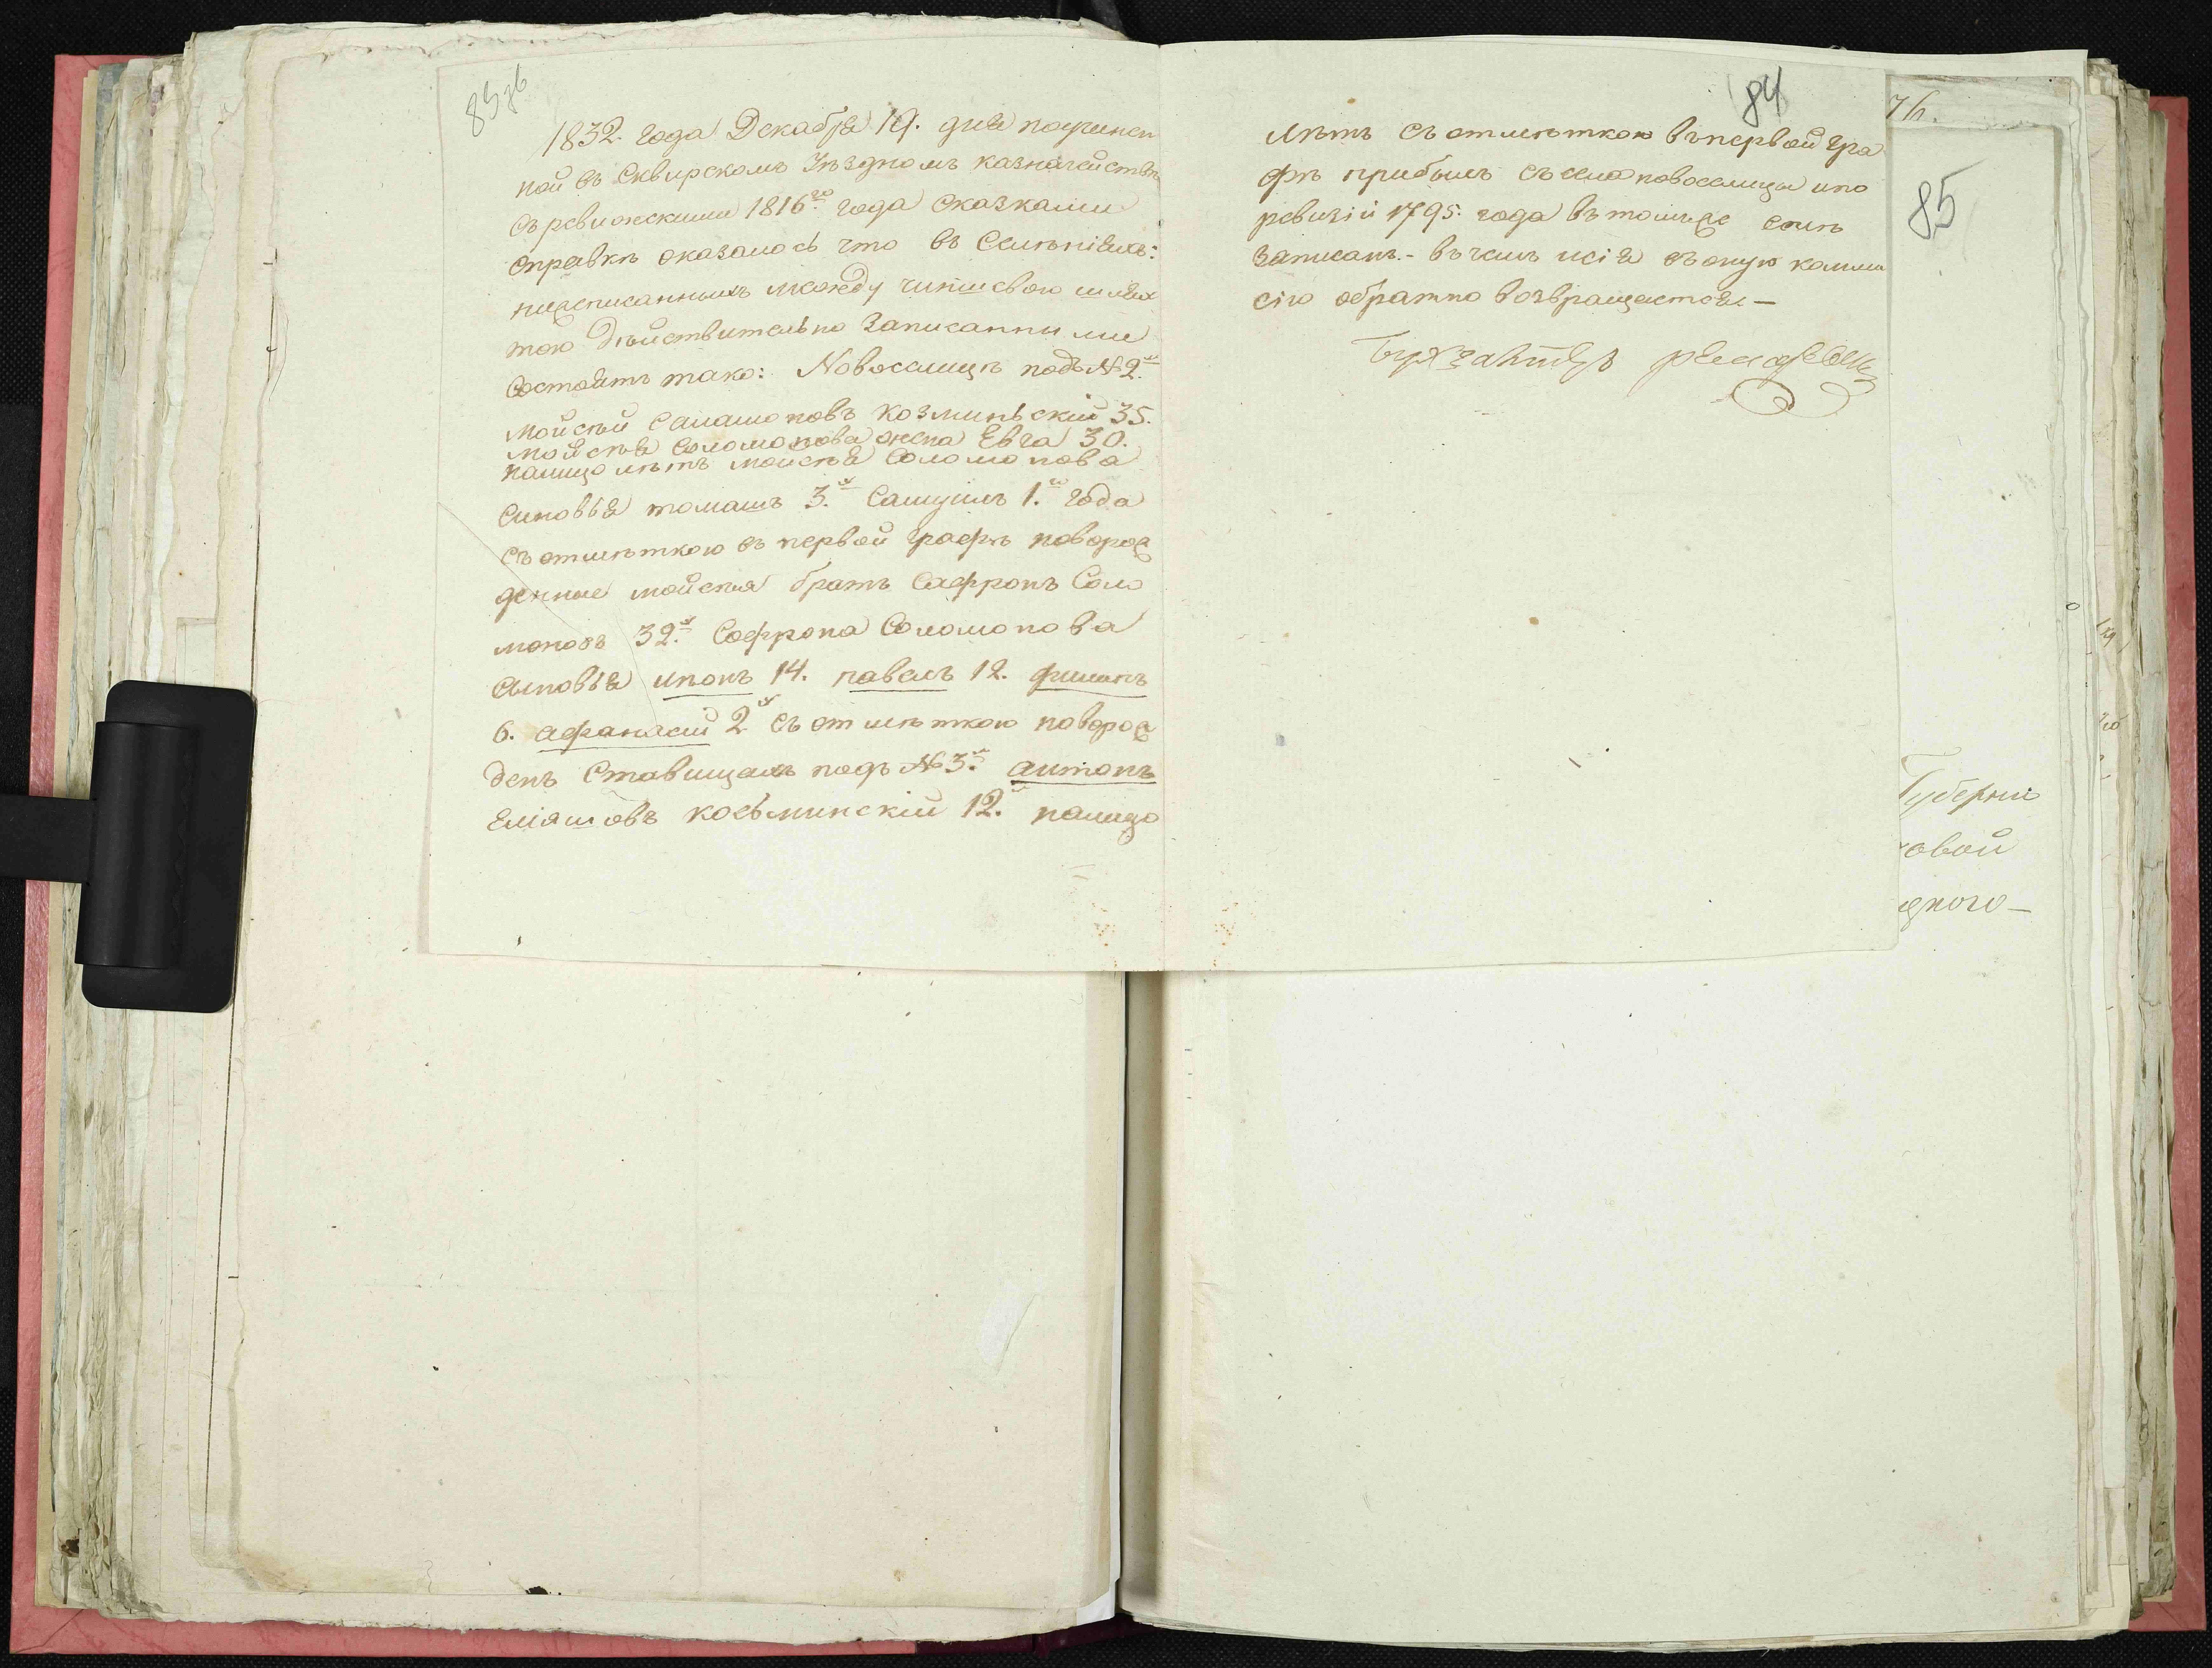 83 зб
1832. года Декабря 19. дня поучинен
ной въ Сквирскомъ Уѣздномъ казначействѣ
съ ревижскими 1816го года сказками
справкѣ оказалось что въ Селѣніяхъ:
нижеписанныхъ между чиншевою шлях
тою Дѣйствительно Записанными
состоятъ тако: Новоселицѣ подъ №2.м
Мойсѣй Саламоновъ Козминьский 35.
Мойсѣя Соломонова жена Евга 30.
налицо лѣтъ Мойсѣя Соломонова
синовья томашъ 3.х Самуилъ 1.го года
съ отмѣткою въ первой Графѣ новорож
денные мойсѣя братъ Сафронъ Соло
моновъ 32.х Софрона Соломонова
сыновья Ипонъ 14. павелъ 12. филипъ
6. афанасий 2х съ отмѣткою новорож
денъ Ставищахъ подъ №3.м антонъ
Еліяшовъ косьминский 12.х налицо
84
лѣтъ съ отмѣткою въ первой Гра
фѣ прибылъ съ села новоселицы и по
ревизіи 1795. года въ томъ же селѣ
Записанъ.- въ чемъ и сія въ оную комми
сію обратно возвращается.—
Бухгалтеръ
76.
85
Губерніи
овой
дного—